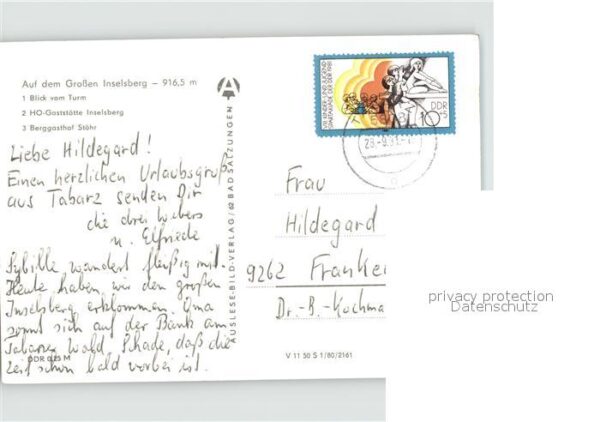 Auf dem Großen Inselsberg – 916,5 m
1 Blick vom Turm
2 HO-Gaststätte Inselsberg
3 Berggasthof Stöhr
Liebe Hildegard!
Einen herzlichen Urlaubsgruß
aus Tabarz senden Dir
die drei Webers
u. Elfriede
Sybille wandert fleißig mit.
Heute haben wir den großen
Inselsberg erklommen. Oma
sonnt sich auf der Bank am
Tabarzer Wald. Schade, daß die
Zeit schon bald vorbei ist.
DDR 0,25 M
AUSLESE-BILD-VERLAG/62 BAD SALZUNGEN
VIII. KINDER- UND JUGEND
SPARTAKIADE DER DDR 1981
DDR
10+5
Frau
Hildegard
9262 Franken
Dr.-B.-Kochma
V 11 50 S 1/80/2161
privacy protection
Datenschutz